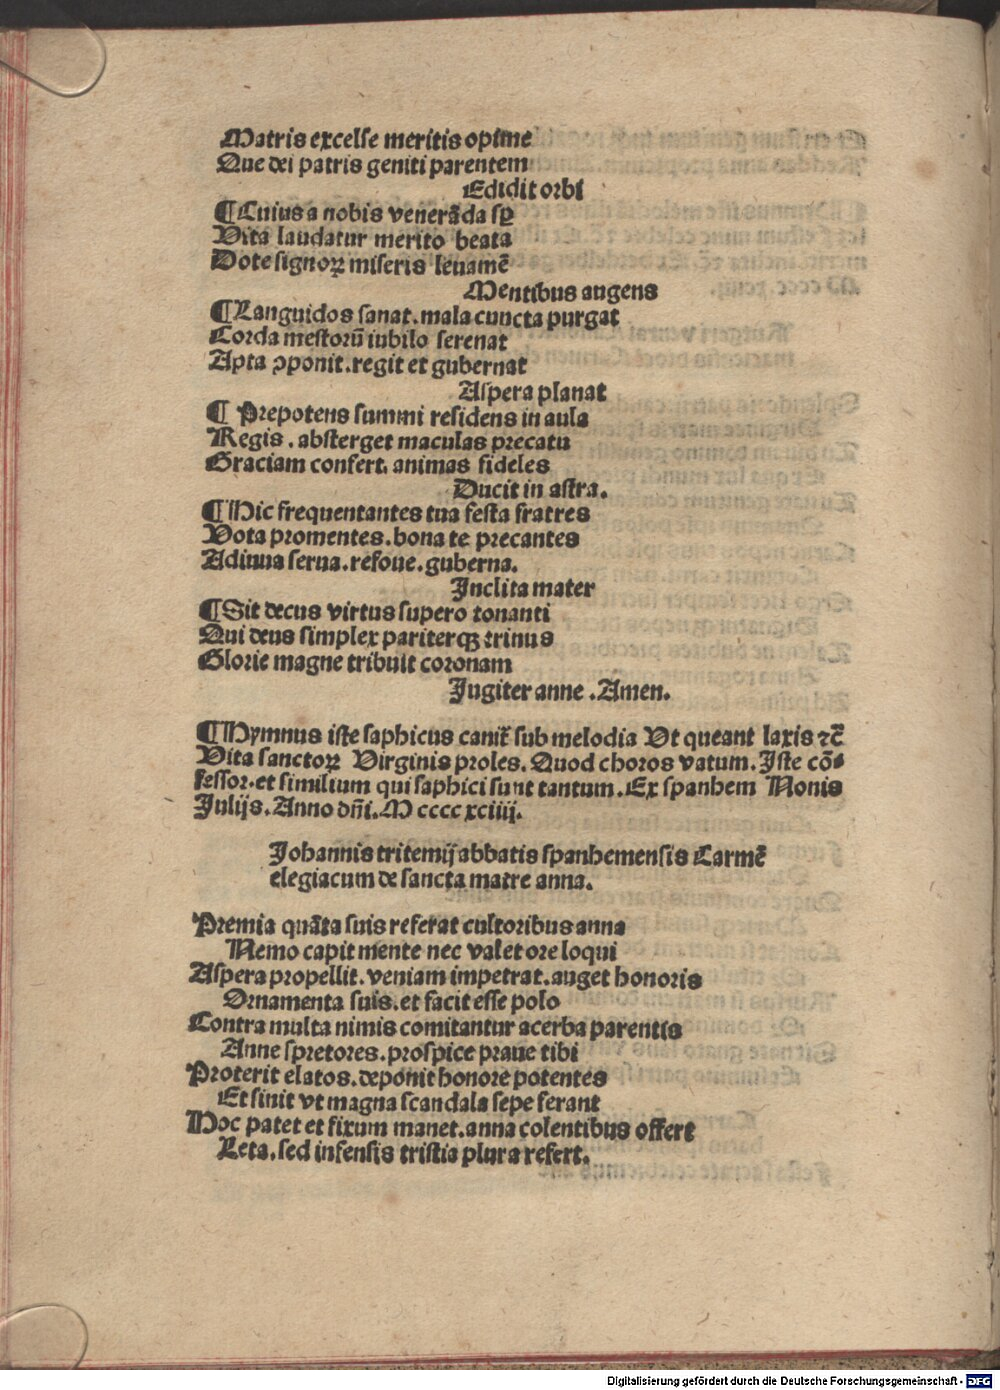 Matris excelse meritis opime
Que dei patris geniti parentem
Edidit orbi
¶Cuius a nobis venerãda sp̱
Vita laudatur merito beata
Dote signoꝝ miseris leuamẽ
Mentibus augens
¶Languidos sanat. mala cuncta purgat
Corda mestorũ iubilo serenat
Apta ꝓponit. regit et gubernat
Aspera planat
¶ Prepotens summi residens in aula
Regis. absterget maculas precatu
Graciam confert. animas fideles
Ducit in astra.
¶Hic frequentantes tua festa fratres
Vota promentes. bona te precantes
Adiuua serua. refoue. guberna.
Inclita mater
¶Sit decus virtus supero tonanti
Qui deus simplex pariterqꝫ trinus
Glorie magne tribuit coronam
Jugiter anne .Amen.
¶Hymnus iste saphicus canit̃ sub melodia Vt queant laxis ⁊c̃
Vita sanctoꝝ Virginis proles. Quod choros vatum. Iste cõ⸗
fessor. et similium qui saphici sunt tantum. Ex spanhem Nonis
Julijs. Anno dñi. M cccc xciiij.
Johannis tritemij abbatis spanhemensis Carmẽ
elegiacum de sancta matre anna.
Premia quãta suis referat cultoribus anna
Nemo capit mente nec valet ore loqui
Aspera propellit. veniam impetrat. auget honoris
Ornamenta suis. et facit esse polo
Contra multa nimis comitantur acerba parentis
Anne spretores. prospice praue tibi
Proterit elatos. deponit honore potentes
Et sinit vt magna scandala sepe ferant
Hoc patet et fixum manet. anna colentibus offert
Leta. sed infensis tristia plura refert.
Digitalisierung gefördert durch die Deutsche Forschungsgemeinschaft - DFG